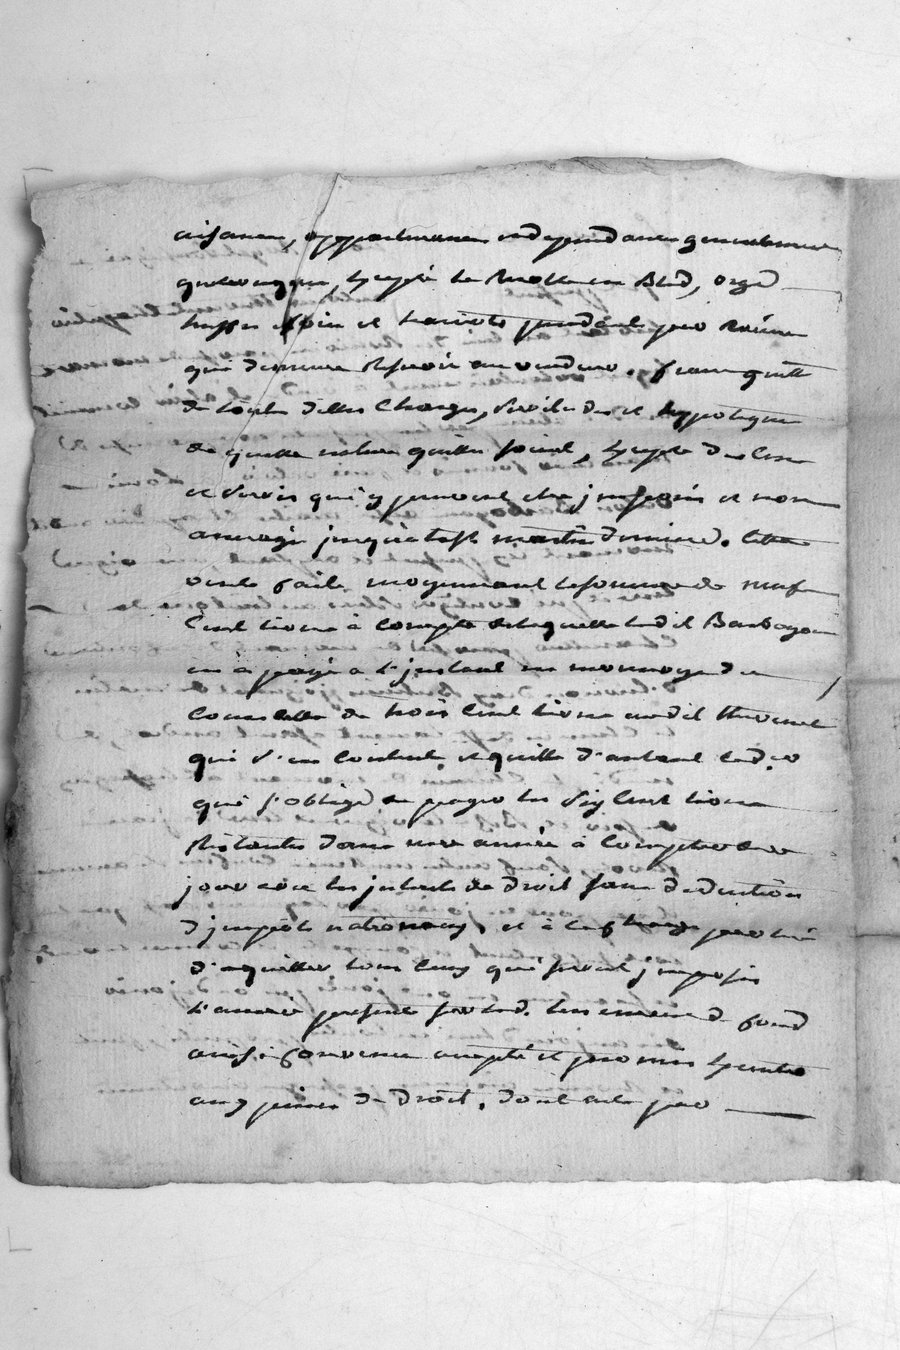 aisances, appartenances et dependances generalement
quelconques, excepté la Recolte en Bled, orge
foin et haricots pendants par Racines
que demeure Reservée au vendeur. franc quitte
de toutes dettes Charges, servitudes et hypoteques
de quelle nature quelles soient, excepté des Cens
et servis qui y peuvent être imposés et non
arreragés jusqu'à la st martin derniere. Cette
vente faite moyennant la somme de neuf
Cent livres à compte de laquelle ledit
en a payé a l'instant en monnoye de
Cours celle de trois Cent livres audit Thevenet
qui s'en Contente, et quitte d'autant led.
qui s'oblige de payer les six Cent livres
Restantes dans une année à Compter de ce
jour avec les interets de droit sans deduction
d'impôts nationaux, et à la charge par lui
d'aquitter tous ceux qui seront imposés
l'année presente sur led. tenement de fond
ainsi Convenu accepté et promis executer
aux peines de droit. dont acte par